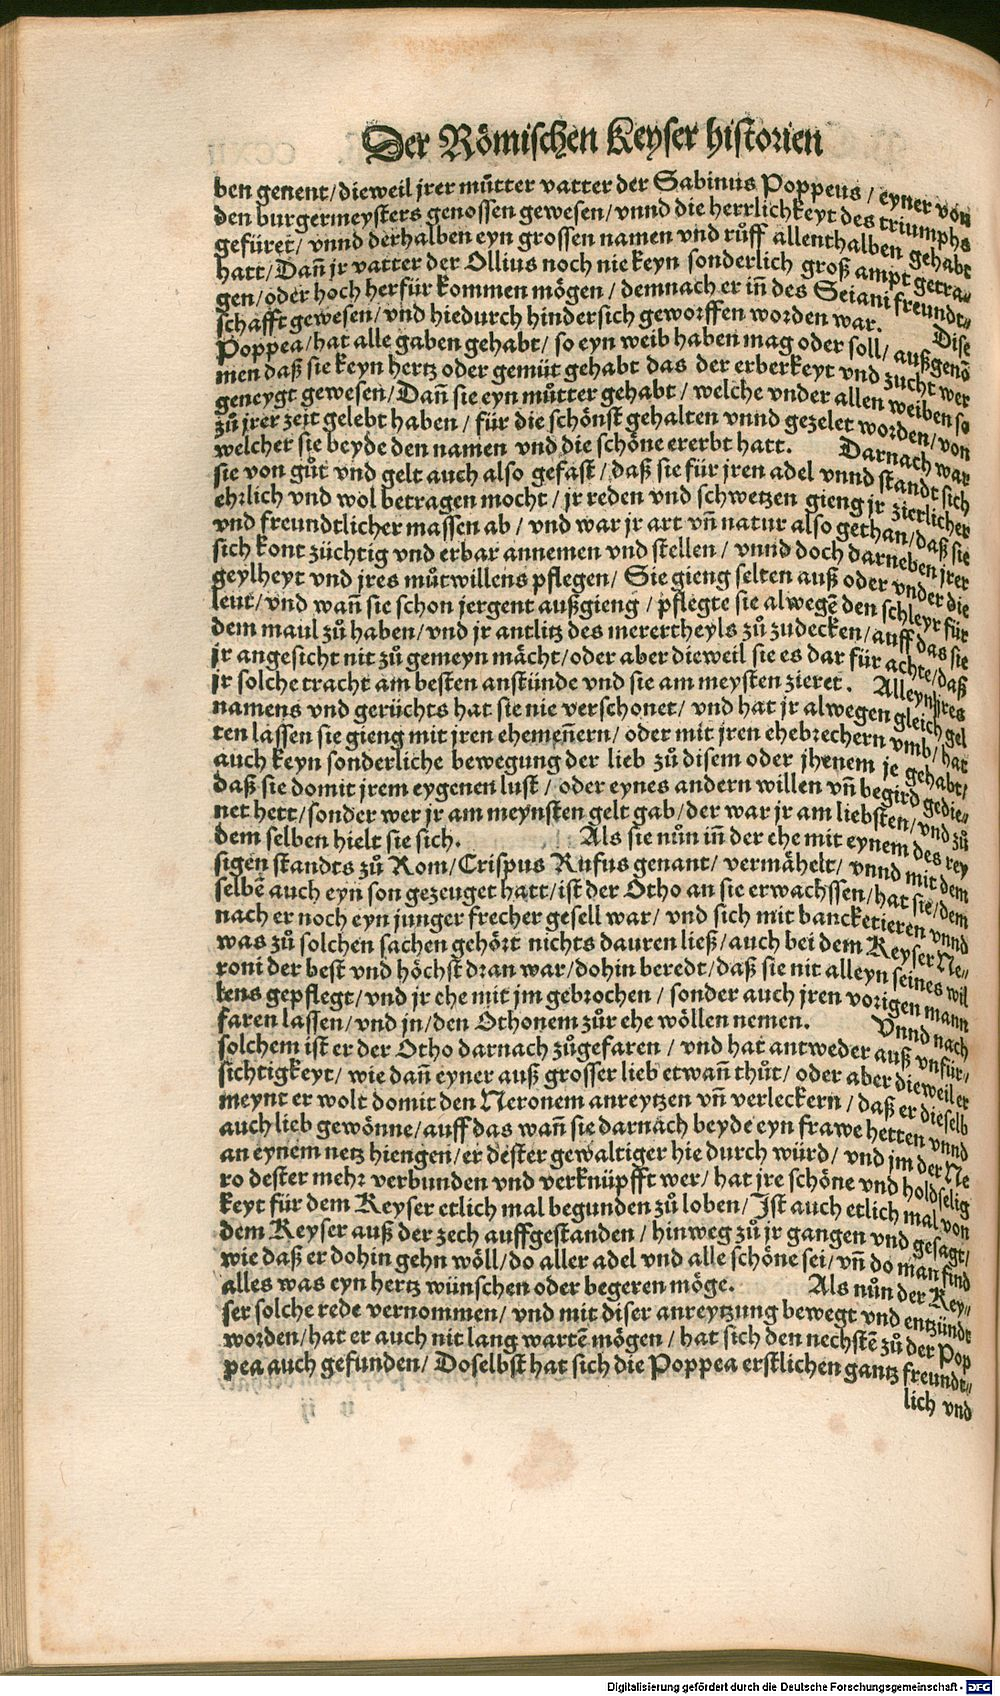 Der Römischen Keyser historien
ben genent/dieweil jrer můtter vatter der Sabinus Poppeus / eyner von
den burgermeysters genossen gewesen/vnnd die herrlichkeyt des triumphs
gefüret/ vnnd derhalben eyn grossen namen vnd růff allenthalben gehabt
hatt/Dañ jr vatter der Ollius noch nie keyn sonderlich groß ampt getra⸗
gen/oder hoch herfür kommen mögen / demnach er iñ des Seiani freundt⸗
schafft gewesen/vnd hiedurch hindersich geworffen worden war. Dise
Poppea/hat alle gaben gehabt/ so eyn weib haben mag oder soll/ außgenõ
men daß sie keyn hertz oder gemüt gehabt das der erberkeyt vnd zucht wer
geneygt gewesen/Dañ sie eyn můtter gehabt / welche vnder allen weiben so
zů jrer zeit gelebt haben / für die schönst gehalten vnnd gezelet worden/von
welcher sie beyde den namen vnd die schöne ererbt hatt. Darnach war
sie von gůt vnd gelt auch also gefast / daß sie für jren adel vnnd standt sich
ehrlich vnd wol betragen mocht / jr reden vnd schwetzen gieng jr zierlicher
vnd freundtlicher massen ab / vnd war jr art vñ natur also gethan/daß sie
sich kont züchtig vnd erbar annemen vnd stellen / vnnd doch darneben jrer
geylheyt vnd jres můtwillens pflegen/ Sie gieng selten auß oder vnder die
leut/vnd wañ sie schon jergent außgieng / pflegte sie alwegẽ den schleyr für
dem maul zů haben/vnd jr antlitz des merertheyls zů zudecken/auff das sie
jr angesicht nit zů gemeyn mächt/oder aber dieweil sie es dar für achte/daß
jr solche tracht am besten anstünde vnd sie am meysten zieret. Alleyn jres
namens vnd gerüchts hat sie nie verschonet/ vnd hat jr alwegen gleich gel
ten lassen sie gieng mit jren ehemeñern/ oder mit jren ehebrechern vmb/ hat
auch keyn sonderliche bewegung der lieb zů disem oder jhenem je gehabt/
daß sie domit jrem eygenen lust / oder eynes andern willen vñ begird gedie⸗
net hett/sonder wer jr am meynsten gelt gab/der war jr am liebsten/vnd zů
dem selben hielt sie sich. Als sie nůn iñ der ehe mit eynem des rey
sigen standts zů Rom/Crispus Rufus genant/ vermähelt/ vnnd mit dem
selbẽ auch eyn son gezeuget hatt/ist der Otho an sie erwachssen/hat sie/dem
nach er noch eyn junger frecher gesell war/ vnd sich mit bancketieren vnnd
was zů solchen sachen gehört nichts dauren ließ/auch bei dem Keyser Ne⸗
roni der best vnd höchst dran war/dohin beredt/daß sie nit alleyn seines wil
lens gepflegt/vnd jr ehe mit jm gebrochen / sonder auch jren vorigen mann
faren lassen/vnd jn/den Othonem zůr ehe wöllen nemen. Vnnd nach
solchem ist er der Otho darnach zůgefaren / vnd hat antweder auß vnfür⸗
sichtigkeyt/ wie dañ eyner auß grosser lieb etwañ thůt/ oder aber dieweil er
meynt er wolt domit den Neronem anreytzen vñ verleckern / daß er dieselb
auch lieb gewönne/auff das wañ sie darnach beyde eyn frawe hetten vnnd
an eynem netz hiengen/er dester gewaltiger hie durch würd/ vnd jm der Ne
ro dester mehr verbunden vnd verknüpfft wer/ hat jre schöne vnd holdselig
keyt für dem Keyser etlich mal begunden zů loben/ Ist auch etlich mal von
dem Keyser auß der zech auffgestanden / hinweg zů jr gangen vnd gesagt/
wie daß er dohin gehn wöll/do aller adel vnd alle schöne sei/vñ do man find
alles was eyn hertz wünschen oder begeren möge. Als nůn der Key⸗
ser solche rede vernommen/ vnd mit diser anreytzung bewegt vnd entzündt
worden/hat er auch nit lang wartẽ mögen / hat sich den nechstẽ zů der Pop
pea auch gefunden/ Doselbst hat sich die Poppea erstlichen gantz freundt⸗
lich vnd
Digitalisierung gefördert durch die Deutsche Forschungsgemeinschaft - DFG